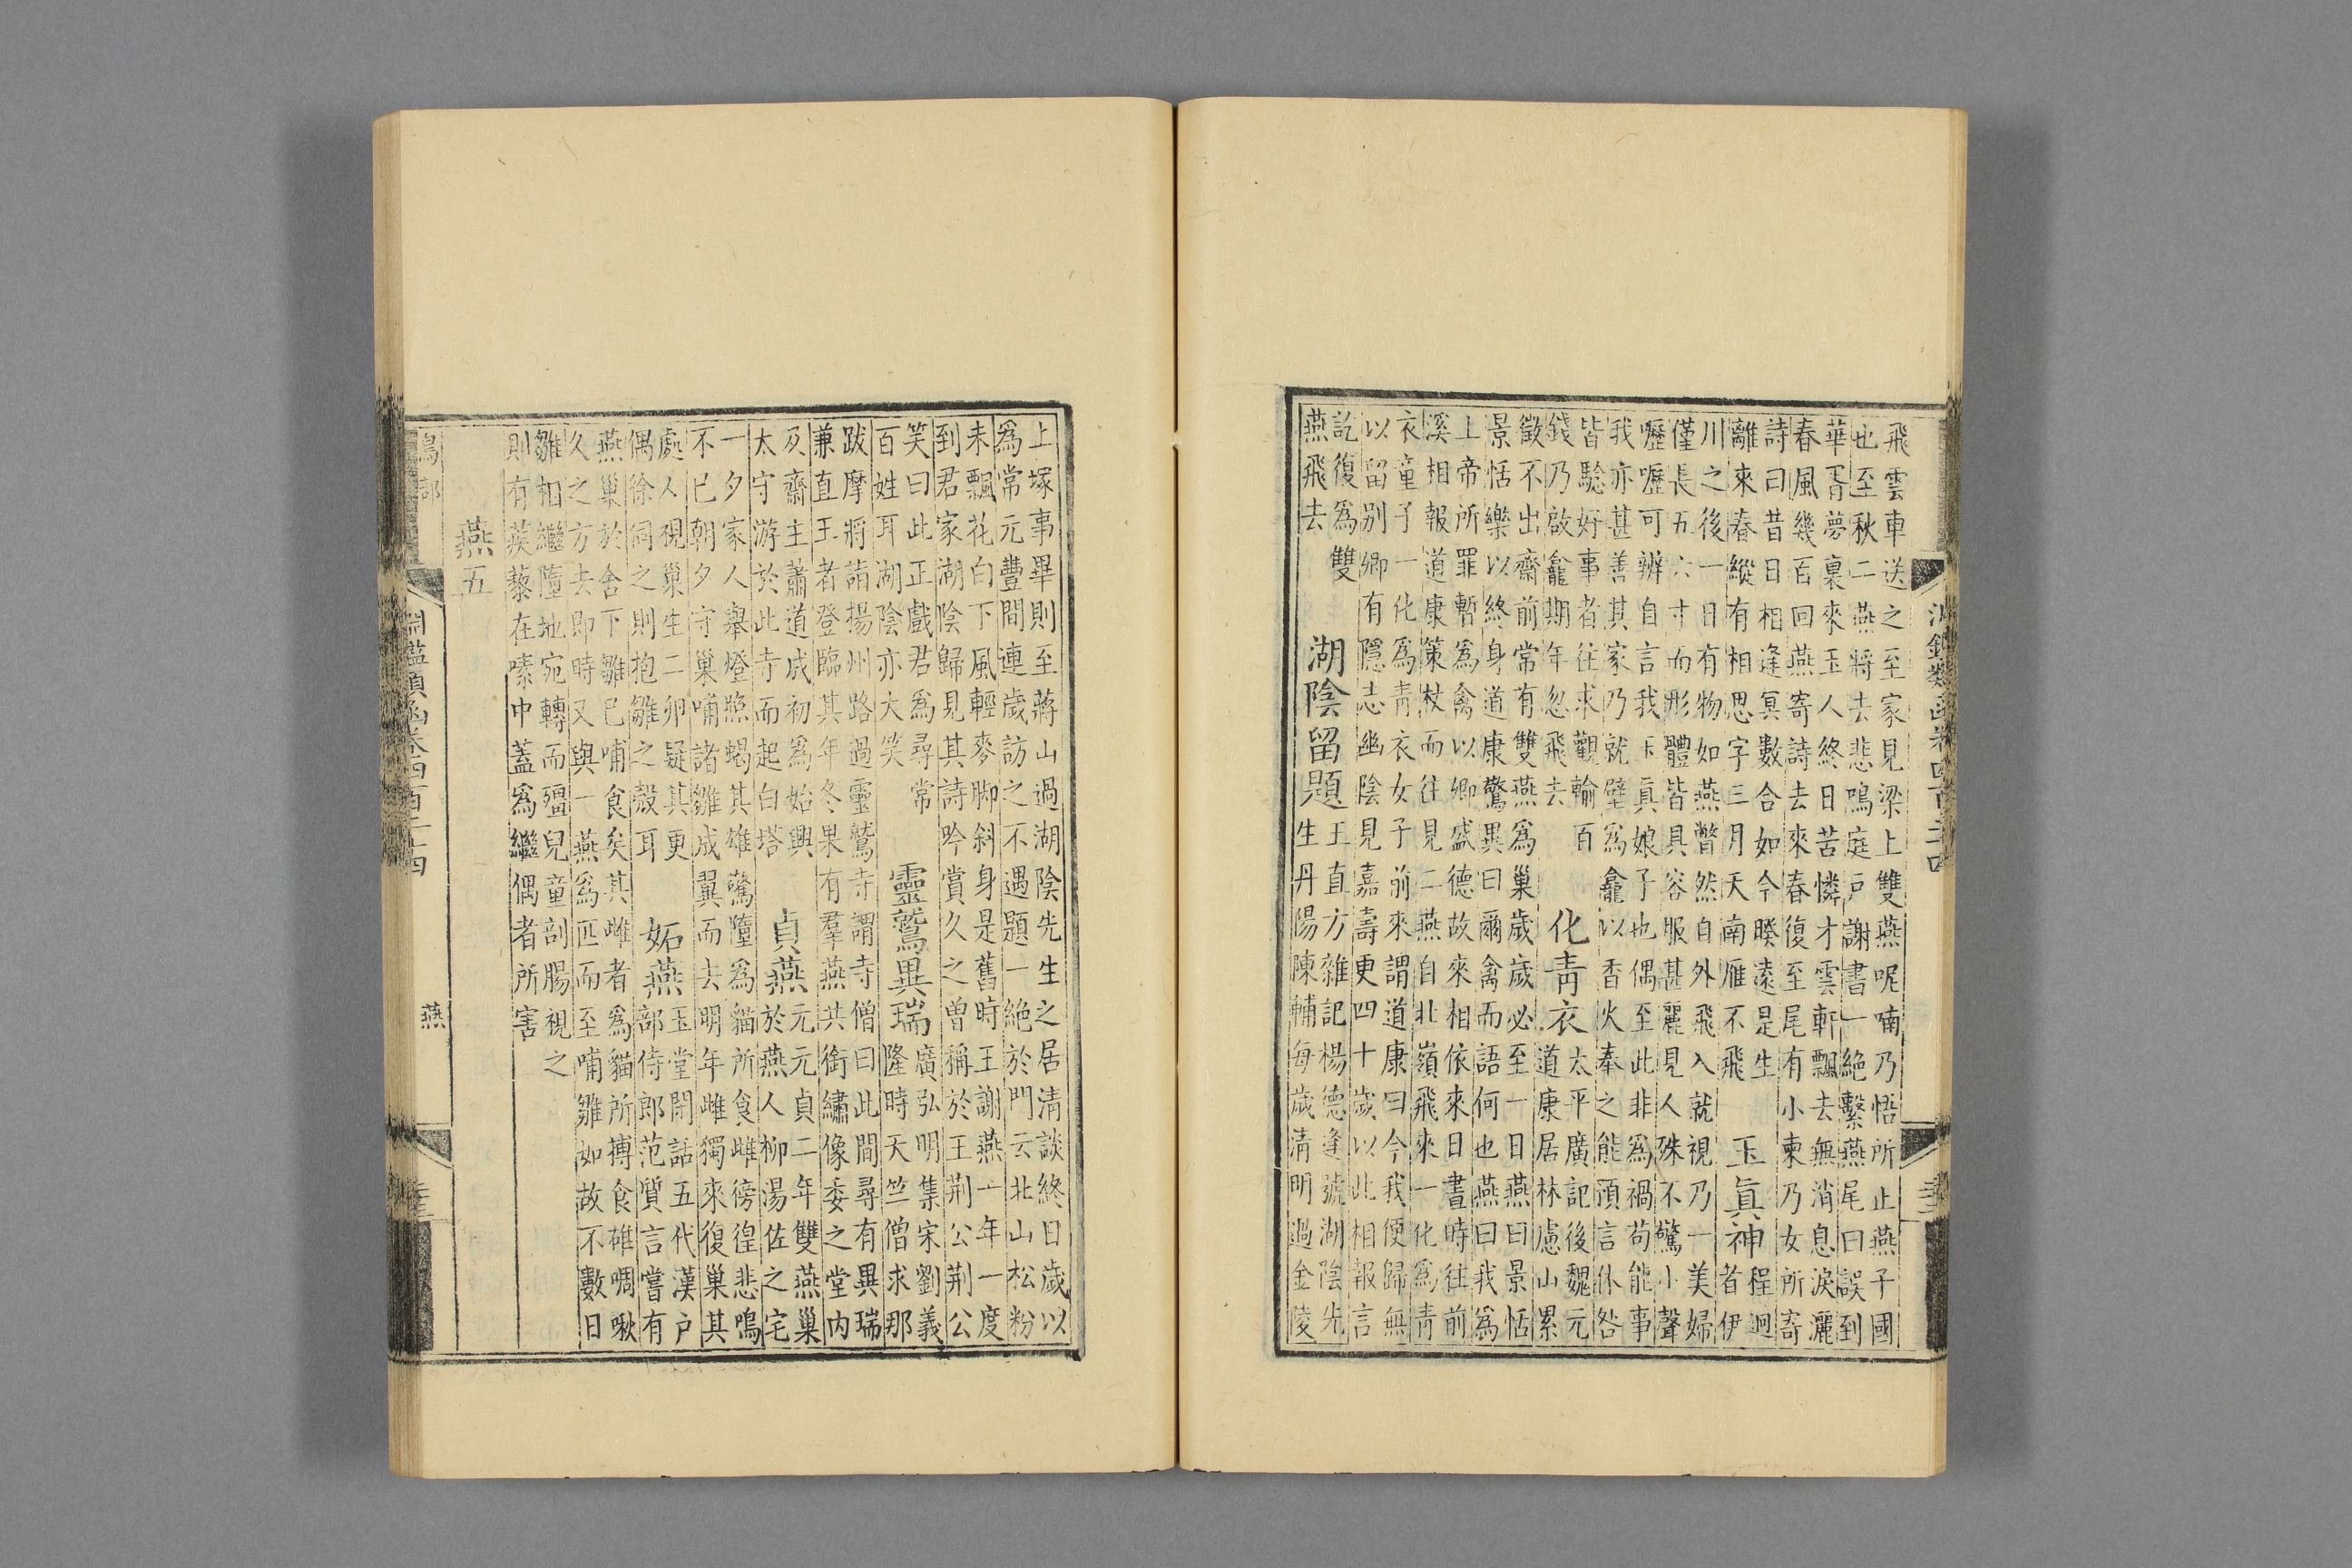 飛雲車送之至家見梁上雙燕呢喃乃悟所止燕子國
也至秋二燕將去悲鳴庭戶謝書一絶繫燕尾曰誤到
華胥夢裏來玉人終日苦憐才雲軒飄去無消息淚灑
春風幾百回燕寄詩去來春復至尾有小柬乃女所寄
詩曰昔日相逢冥數合如今暌遠是生
離來春縱有相思字三月天南雁不飛
玉眞神
程迥
者伊
川之後一日有物如燕瞥然自外飛入就視乃一美婦
僅長五六寸而形體皆具容服甚麗見人殊不驚小聲
嚦嚦可辨自言我玉眞娘子也偶至此非爲禍苟能事
我亦甚善其家乃就壁爲龕以香火奉之能預言休咎
皆驗好事者往求觀輸百
錢乃啟龕期年忽飛去
化青衣
太平廣記後魏元
道康居林慮山累
徵不出齋前常有雙燕爲巢歲歲必至一日燕曰景恬
景恬樂以終身道康驚異曰爾禽而語何也燕曰我爲
上帝所罪暫爲禽以卿盛德故來相依來日晝時往前
溪相報道康策杖而往見二燕自北嶺飛來一化爲青
衣童子一化爲青衣女子前來謂道康曰今我便歸無
以留别卿有隱志幽陰見嘉壽更四十歲以此相報言
訖復爲雙
燕飛去
湖陰留題
王直方雜記楊德逢號湖陰先
生丹陽陳輔每歲清明過金陵
上塚事畢則至蔣山過湖陰先生之居清談終日歲以
爲常元豐間連歲訪之不遇題一絶於門云北山松粉
未飄花白下風輕麥脚斜身是舊時王謝燕一年一度
到君家湖陰歸見其詩吟賞久之曾稱於王荆公荆公
笑曰此正戲君爲尋常
百姓耳湖陰亦大笑
靈鷲異瑞
廣弘明集宋劉義
隆時天竺僧求那
跋摩將詣揚州路過靈鷲寺謂寺僧曰此間尋有異瑞
兼直王者登臨其年冬果有羣燕共銜繡像委之堂内
及齋主蕭道成初爲始興
太守游於此寺而起白塔
貞燕
元元貞二年雙燕巢
於燕人柳湯佐之宅
一夕家人舉燈照蝎其雄驚墮爲貓所食雌徬徨悲鳴
不已朝夕守巢哺諸雛成翼而去明年雌獨來復巢其
處人視巢生二卵疑其更
偶徐伺之則抱雛之殼耳
妬燕
玉堂閒話五代漢户
部侍郎范質言嘗有
燕巢於舍下雛已哺食矣其雌者爲貓所搏食雄啁啾
久之方去即時又與一燕爲匹而至哺雛如故不數日
雛相繼墮地宛轉而殭兒童剖腸視之
則有蒺藜在嗉中蓋爲繼偶者所害
燕五
鳥部
淵鑑類函卷四百二十四
燕